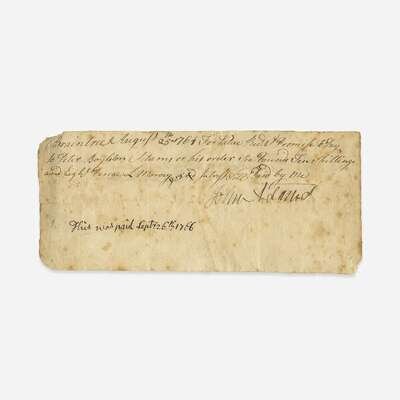 Braintree August 25th 1764 For Value Recd I Promise to Pay
to Peter Boylston Adams or his order Six Pounds Ten Shillings
and Eight Pence L Money
by me
John Adams
This was paid Sept 26th 1766